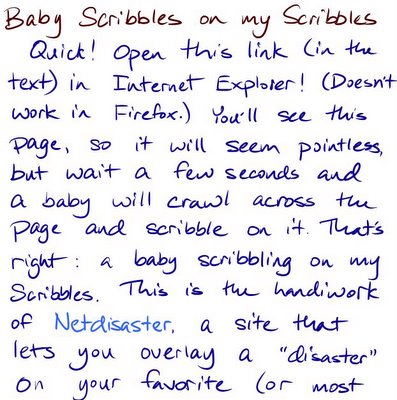 Baby Scribbles on my Scribbles
Quick! Open this link (in the
text) in Internet Explorer! (Doesn't
work in Firefox.) You'll see this
page, so it will seem pointless,
but wait a few seconds and
a baby will crawl across the
page and scribble on it. That's
right: a baby scribbling on my
Scribbles. This is the handiwork
of Netdisaster, a site that
lets you overlay a "disaster"
on your favorite (or most